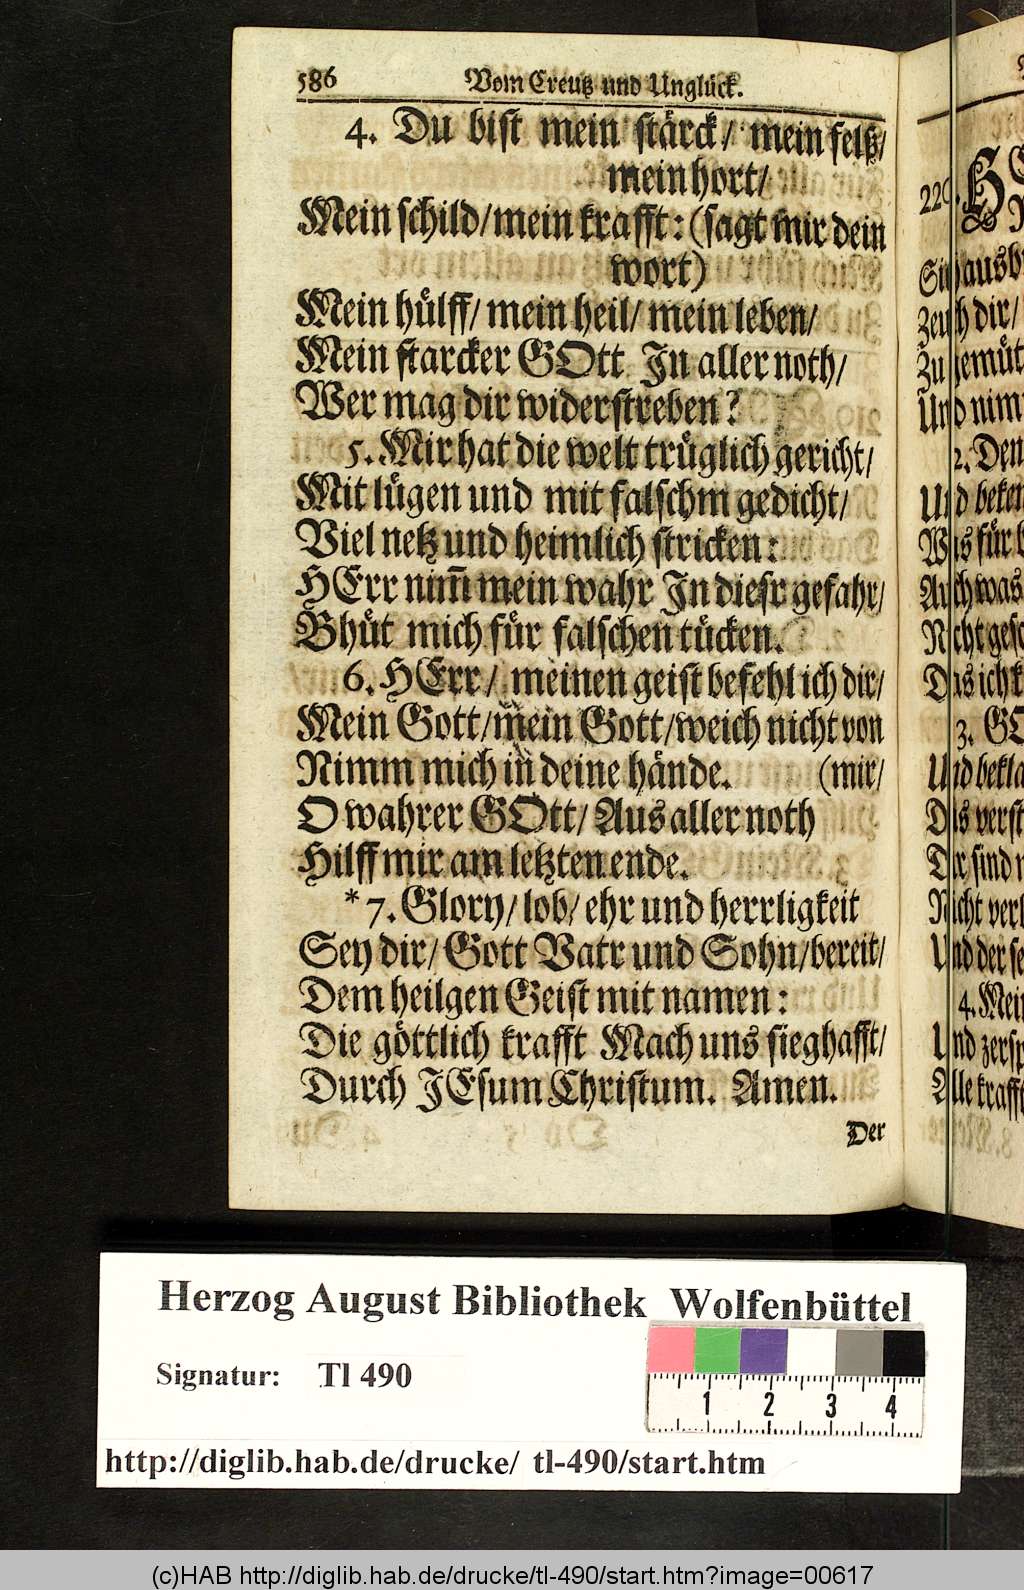 586 Vom Creutz und Unglück.
4. Du bist mein stärck/ mein felß/
mein hort/
Mein schild/mein krafft: (sagt mir dein
wort)
Mein hülff/ mein heil/ mein leben/
Mein starcker GOtt In aller noth/
Wer mag dir widerstreben?
5. Mir hat die welt trüglich gericht/
Mit lügen und mit falschm gedicht/
Viel netz und heimlich stricken:
HErr nim̃ mein wahr In diesr gefahr/
Bhüt mich für falschen tücken.
6. HErr/ meinen geist befehl ich dir/
Mein Gott/mein Gott/weich nicht von
Nimm mich in deine hände. (mir/
O wahrer GOtt/ Aus aller noth
Hilff mir am letzten ende.
*7. Glory/ lob/ ehr und herrligkeit
Sey dir/ Gott Vatr und Sohn/bereit/
Dem heilgen Geist mit namen:
Die göttlich krafft Mach uns sieghafft/
Durch JEsum Christum. Amen.
Der
4. Mei
Herzog August Bibliothek Wolfenbüttel
Signatur: Tl 490
1 2 3 4
http://diglib.hab.de/drucke/ tl-490/start.htm
(c)HAB http://diglib.hab.de/drucke/tl-490/start.htm?image=00617